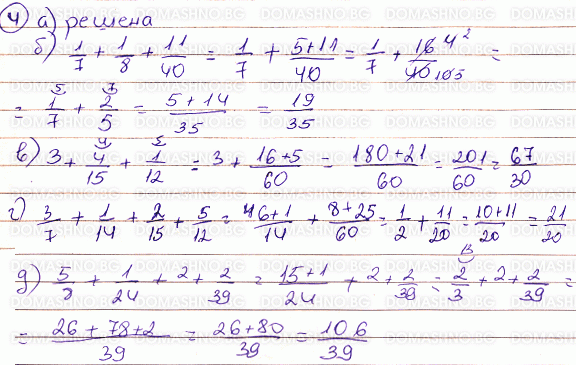 4 а) решена
б) 1/7 + 1/8 + 11/40 = 1/7 + 5+11/40 = 1/7 + 16 4 2/40 10 5 =
= 1/7 + 2/5 = 5+14/35 = 19/35
в) 3 + 4/15 + 1/12 = 3 + 16+5/60 = 180+21/60 = 201/60 = 67/30
г) 3/7 + 1/14 + 2/15 + 5/12 = 6+1/14 + 8+25/60 = 1/2 + 11/20 = 10+11/20 = 21/20
д) 5/8 + 1/24 + 2 + 2/39 = 15+1/24 + 2 + 2/39 = 2/3 + 2 + 2/39 =
= 26+78+2/39 = 26+80/39 = 106/39
DOMASHNO.BG